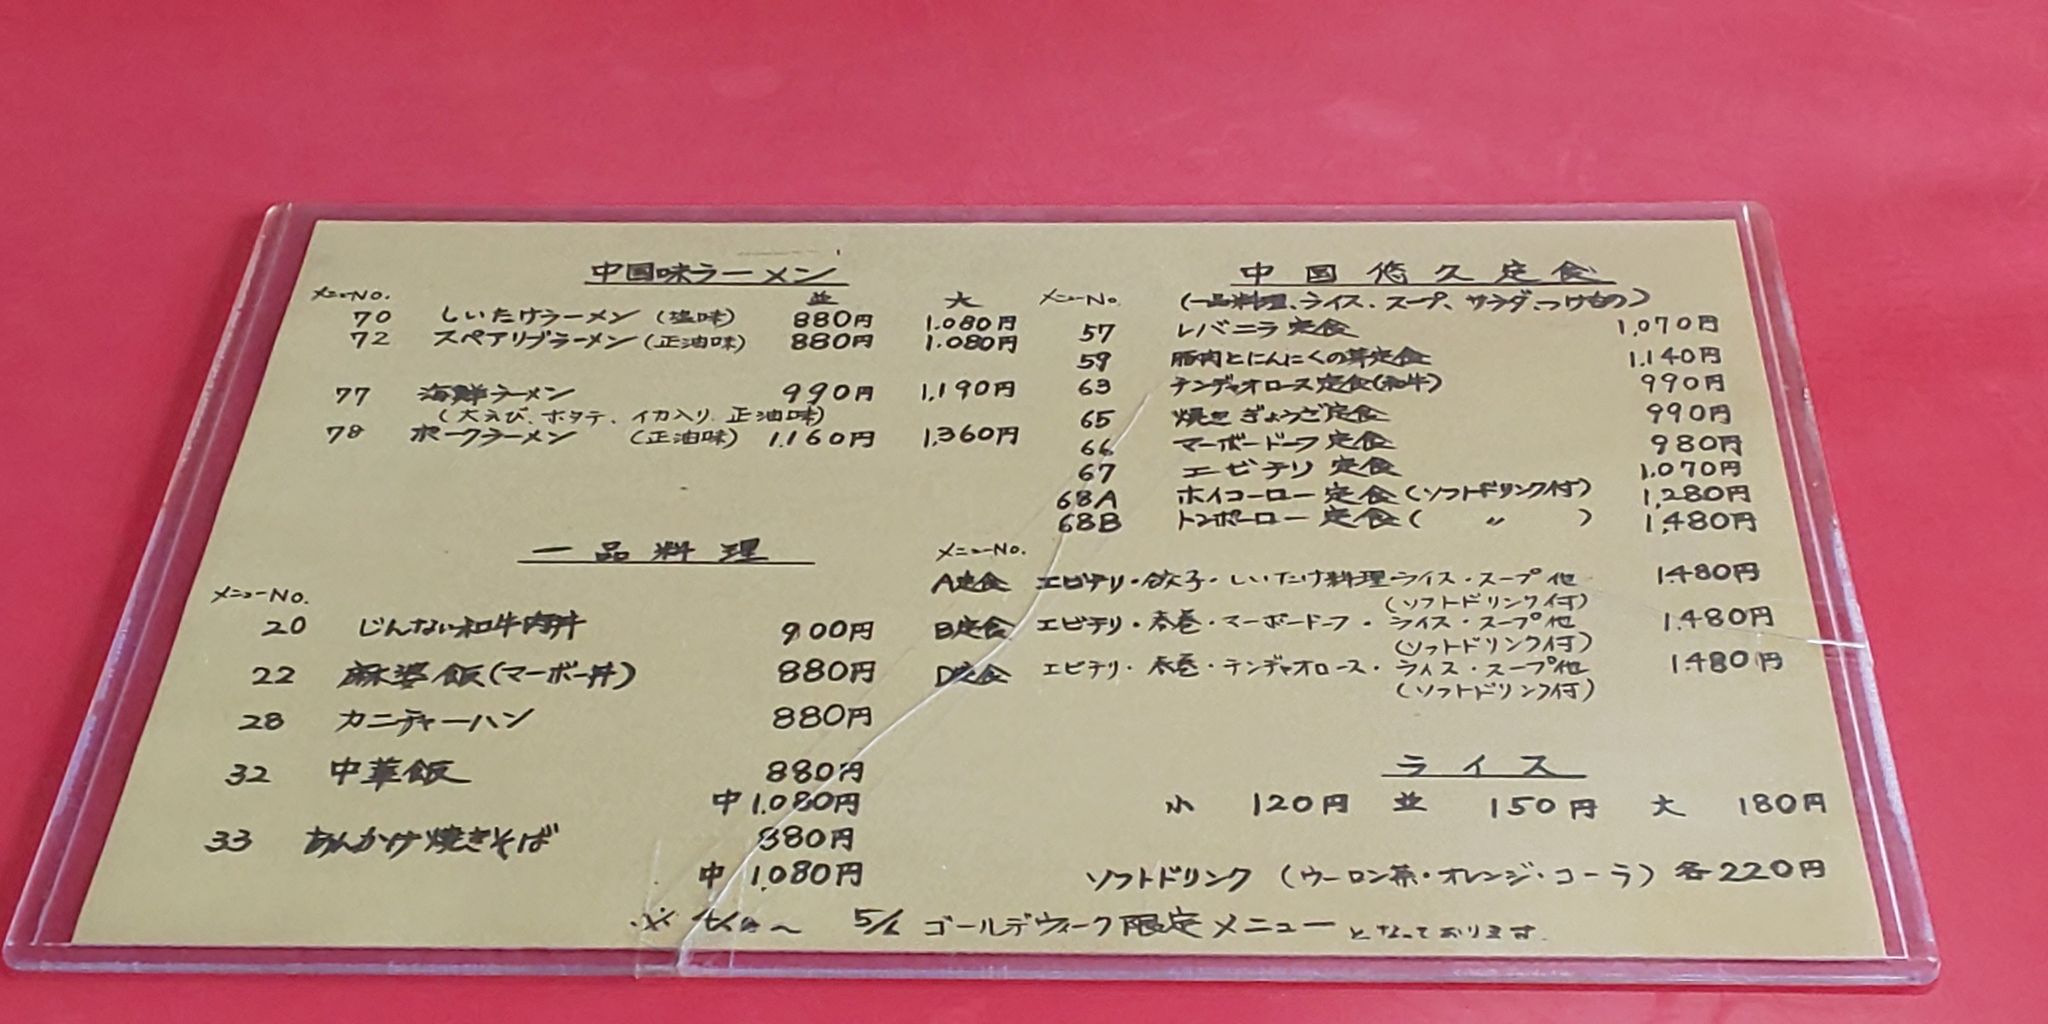 中国味ラーメン
メニューNo. 並 大
70 しいたけラーメン (塩味) 880円 1.080円
72 スペアリブラーメン (正油味) 880円 1.080円
77 海鮮ラーメン 990円 1,190円
(大えび、ホタテ、イカ入り、正油味)
78 ポークラーメン (正油味) 1.160円 1,360円
一品料理
メニューNo.
20 じんない和牛肉丼 900円
22 麻婆飯(マーボー丼) 880円
28 カニチャーハン 880円
32 中華飯 880円
中 1.080円
33 あんかけ焼きそば 880円
中 1.080円
中国悠久定食
メニューNo. (一品料理、ライス、スープ、サラダ、つけもの)
57 レバニラ定食 1,070円
59 豚肉とにんにくの芽定食 1.140円
63 チンヂャオロース定食(和牛) 990円
65 焼きぎょうざ定食 990円
66 マーボードーフ定食 980円
67 エビチリ定食 1.070円
68A ホイコーロー定食(ソフトドリンク付) 1,280円
68B トンポーロー定食( 〃 ) 1,480円
メニューNo.
A定食 エビチリ・餃子・しいたけ料理ライス・スープ他 1.480円
(ソフトドリンク付)
B定食 エビチリ・春巻・マーボードーフ・ライス・スープ他 1.480円
(ソフトドリンク付)
D定食 エビチリ・春巻・チンヂャオロース・ライス・スープ他 1.480円
(ソフトドリンク付)
ライス
小 120円 並 150円 大 180円
ソフトドリンク (ウーロン茶・オレンジ・コーラ) 各220円
※ 〜 5/6 ゴールデウィーク限定メニューとなっております.